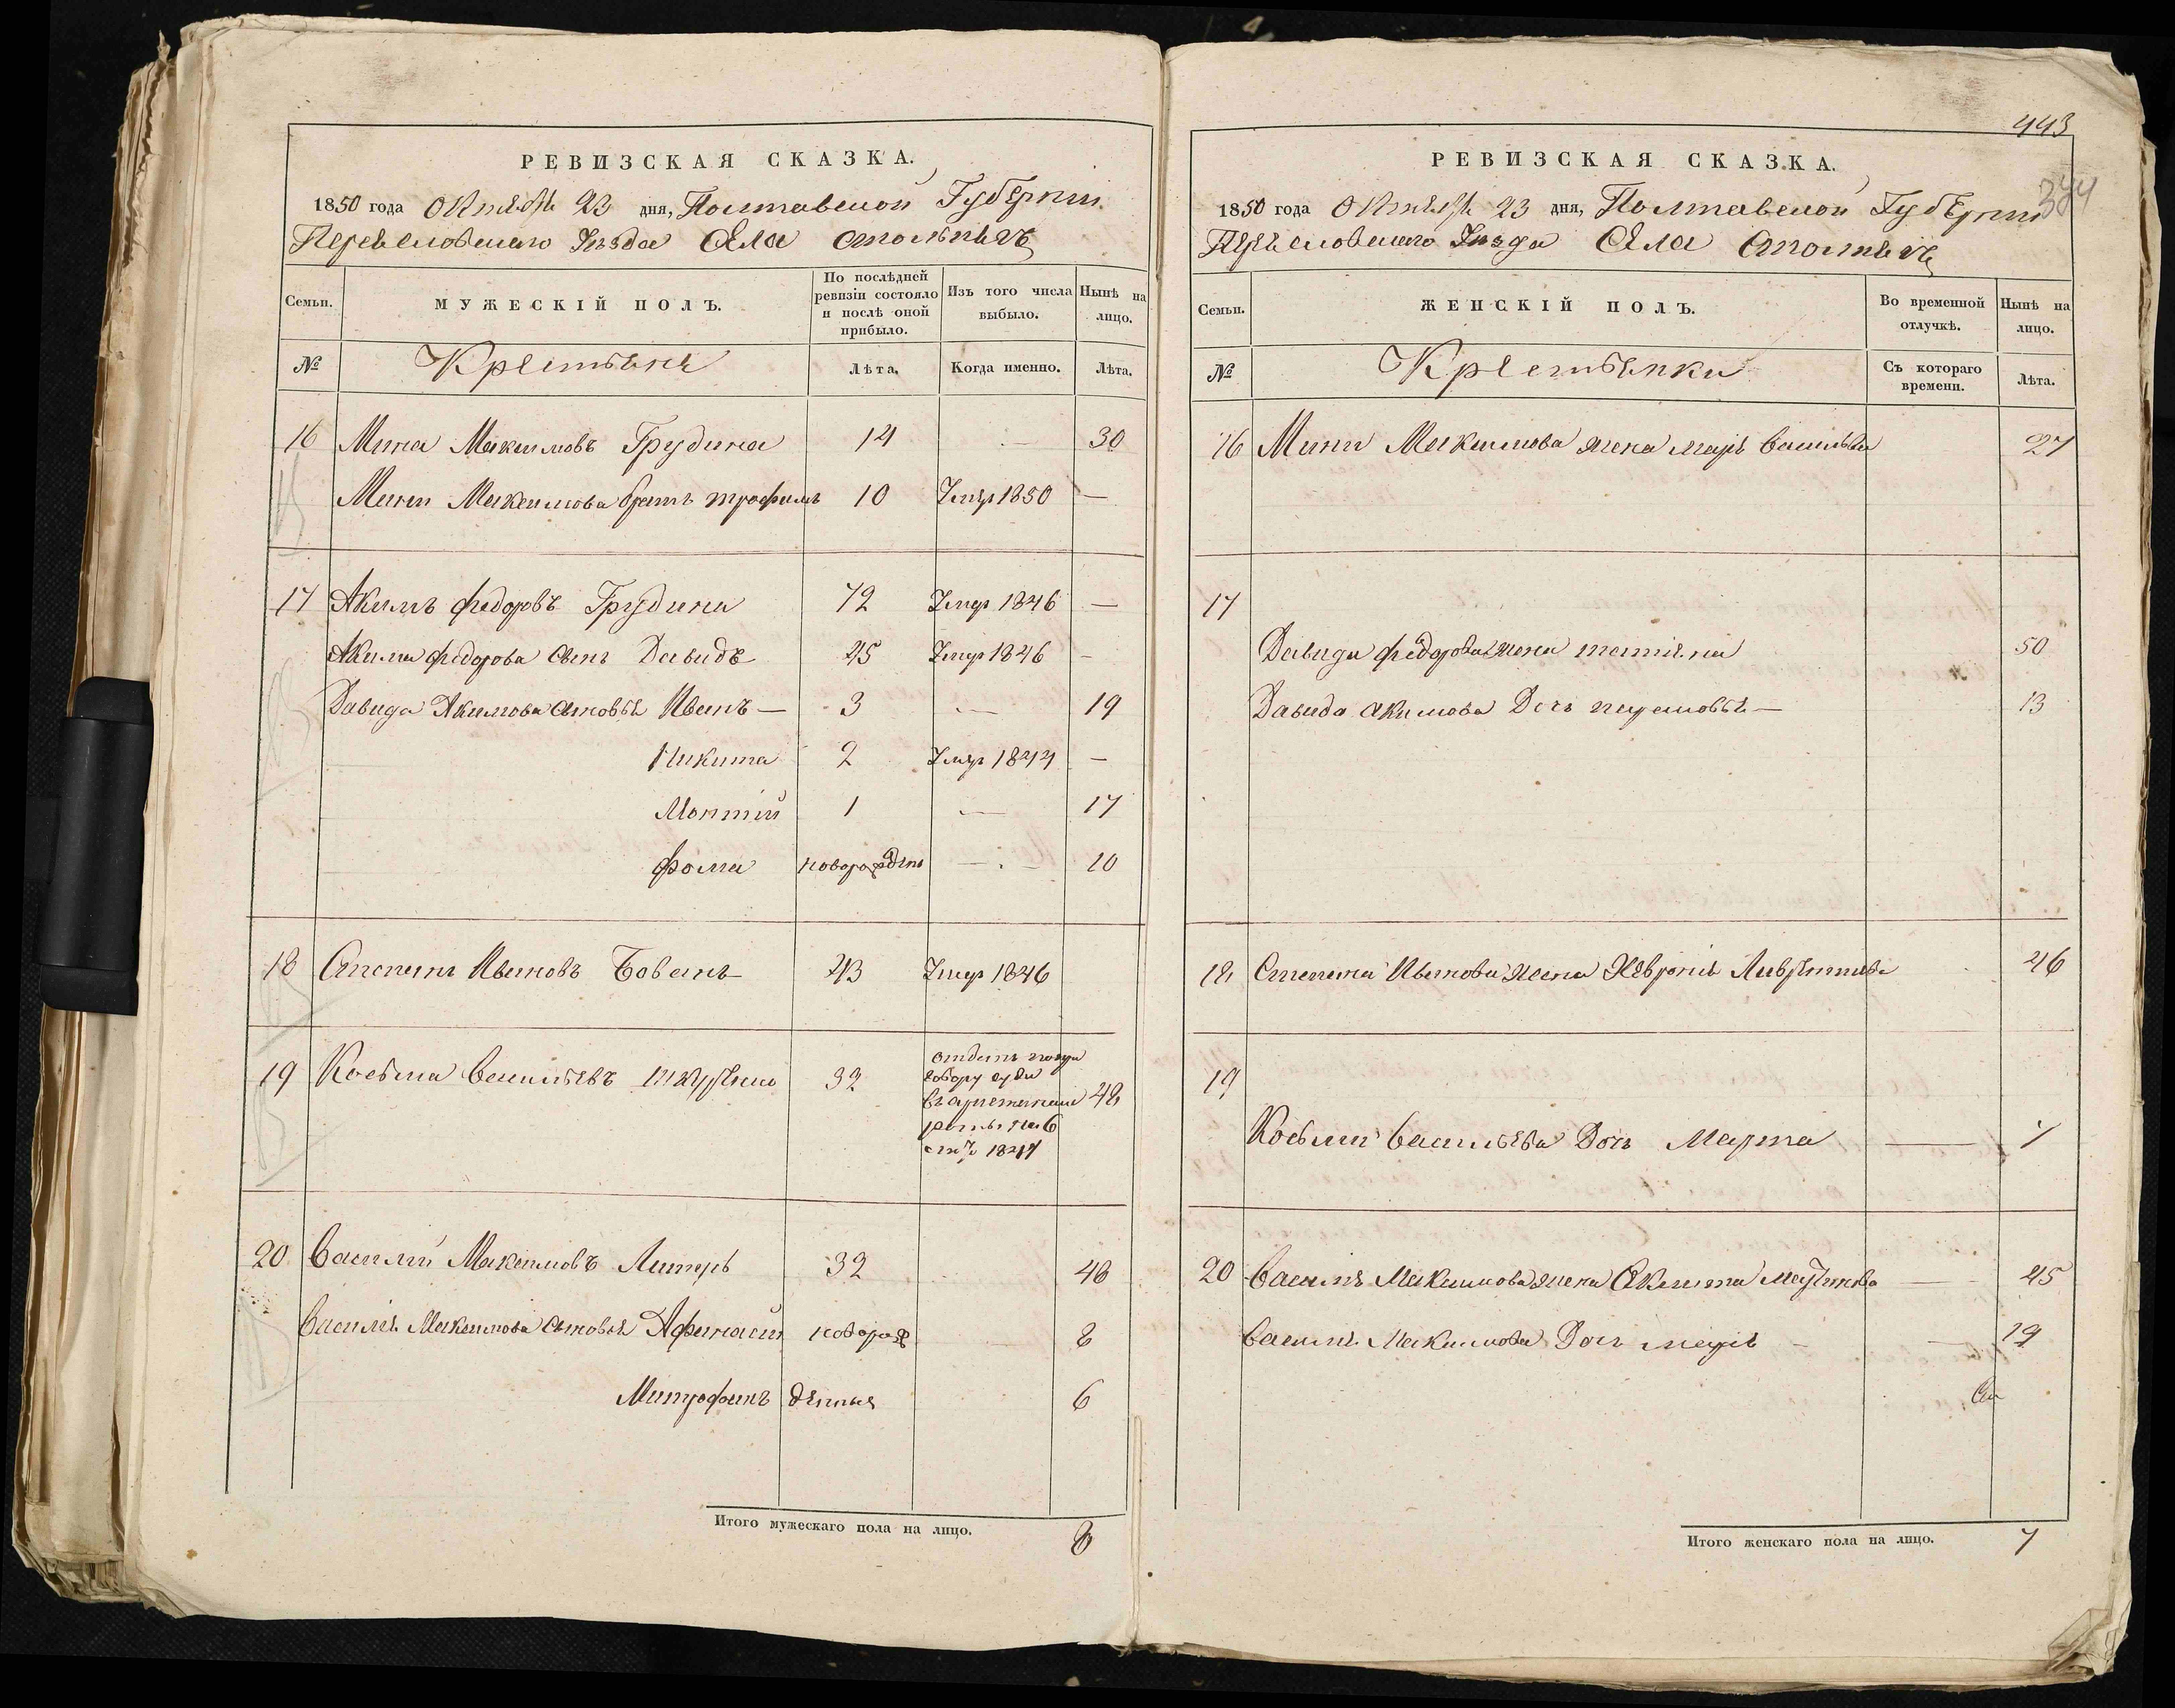 РЕВИЗСКАЯ СКАЗКА.
1850 года Октября 23 дня, Полтавской Губернии
Переяславского Уезда Села
Семьи. МУЖЕСКІЙ ПОЛЪ. По послѣдней ревизіи состояло и послѣ оной прибыло. Изъ того числа выбыло. Нынѣ на лицо.
№ Крестьяне Лѣта. Когда именно. Лѣта.
16 Мина Максимовъ Грудина 14 — 30
Мини Максимова братъ трофимъ 10 Умер 1850 —
17 Акимъ федоровъ Грудина 72 Умер 1846 —
Акима федорова сынъ Давидъ 45 Умер 1846 -
Давида Акимова сыновья Иванъ — 3 — 19
Никита 2 Умер 1844 —
1 — 17
фома новорожден — 10
18 Степанъ Ивановъ 43 Умер 1846
19 Косьма Васильевъ 32 48
1847
20 Василий Максимовъ 32 48
Василия Максимова сыновья Афанасий новорож 8
Митрофанъ денныя 6
Итого мужескаго пола на лицо. 8
443
344
РЕВИЗСКАЯ СКАЗКА.
1850 года Октября 23 дня, Полтавской Губернии
Переяславского Уезда Села
Семьи. ЖЕНСКІЙ ПОЛЪ. Во временной отлучкѣ. Нынѣ на лицо.
№ Крестьянки Съ котораго времени. Лѣта.
16 Мини Максимова жена марья Васильева 27
17
Давида федорова жена татияна 50
Давида Акимова Дочь 13
18 Степана Иванова жена 46
19
Косьми Васильева Дочь Марта — 7
20 Василия Максимова жена — 45
Василия Максимова Дочь марья — 19
Итого женскаго пола на лицо. 7